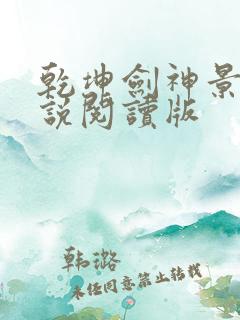 乾坤劍神景
說閱讀版
韩潞
未经同意禁止转载